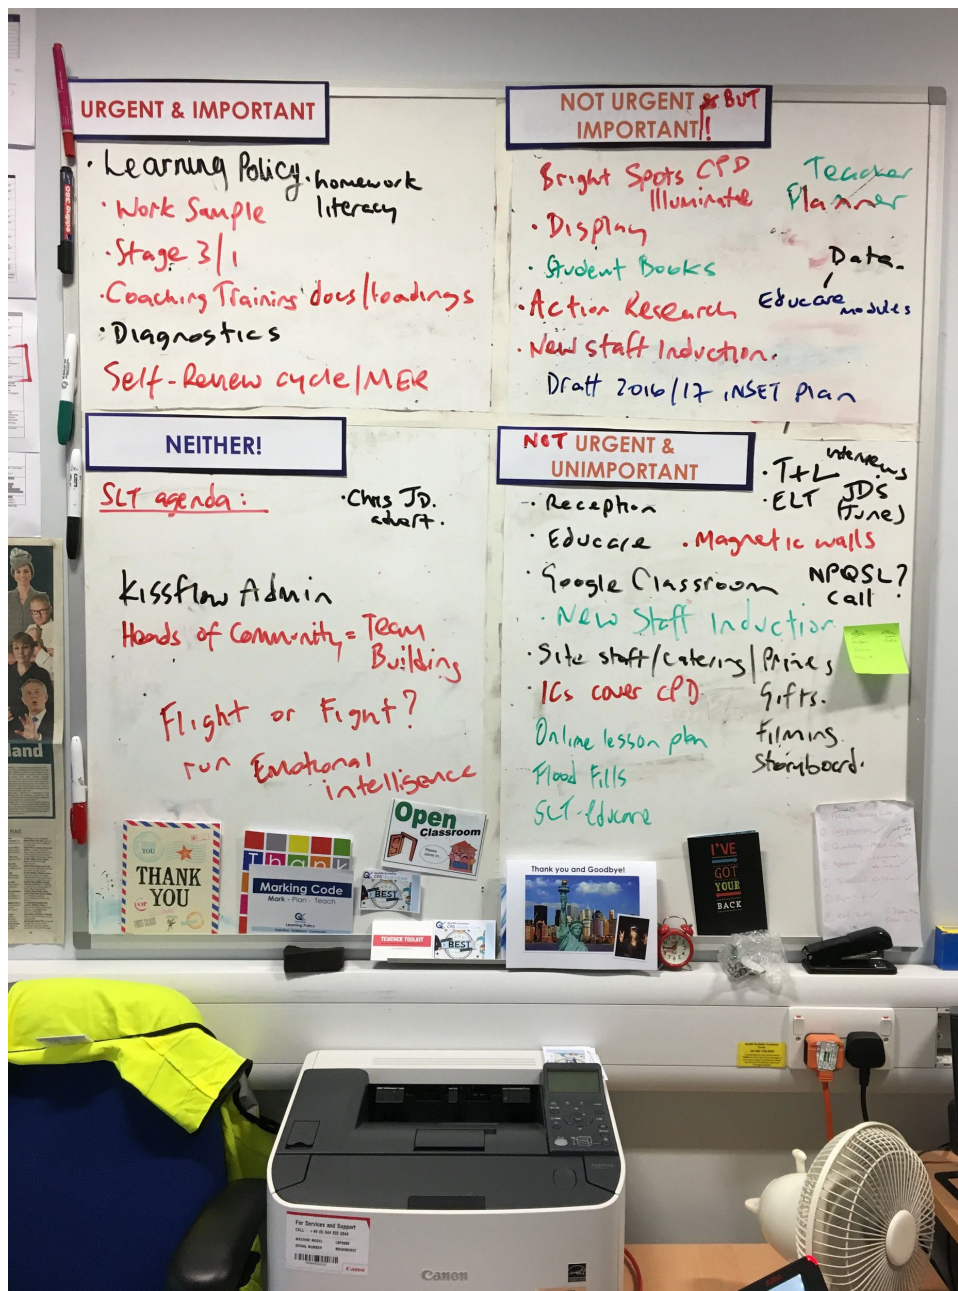 URGENT & IMPORTANT
· Learning Policy · homework
literacy
· Work Sample
· Stage 3/1
· Coaching Training docs/loadings
· Diagnostics
Self-Review cycle/MER
NOT URGENT & BUT
IMPORTANT!
Bright Spots CPD
Illuminate
Teacher
Planner
· Display
· Student Books
Data.
Educare modules
· Action Research
· New staff Induction.
Draft 2016/17 INSET Plan
NEITHER!
SLT agenda:
· Chris JD.
advert.
Kissflow Admin
Heads of Community = Team
Building
Flight or Fight?
run Emotional
intelligence
NOT URGENT &
UNIMPORTANT
· T+L interviews
· ELT JDS
(June)
· Reception
· Educare
· Magnetic walls
· Google Classroom
NPQSL?
call
· New Staff Induction
· Site staff/catering/Prizes
Gifts.
Filming.
Storyboard.
· ICs cover CPD
Online lesson plan
Flood Fills
SLT-Educare
THANK
YOU
Thank
Marking Code
Mark - Plan - Teach
Open
Classroom
BEST
TEACHER TOOLKIT
BEST
Thank you and Goodbye!
I'VE
GOT
YOUR
BACK
land
For Services and Support
Canon
Canon